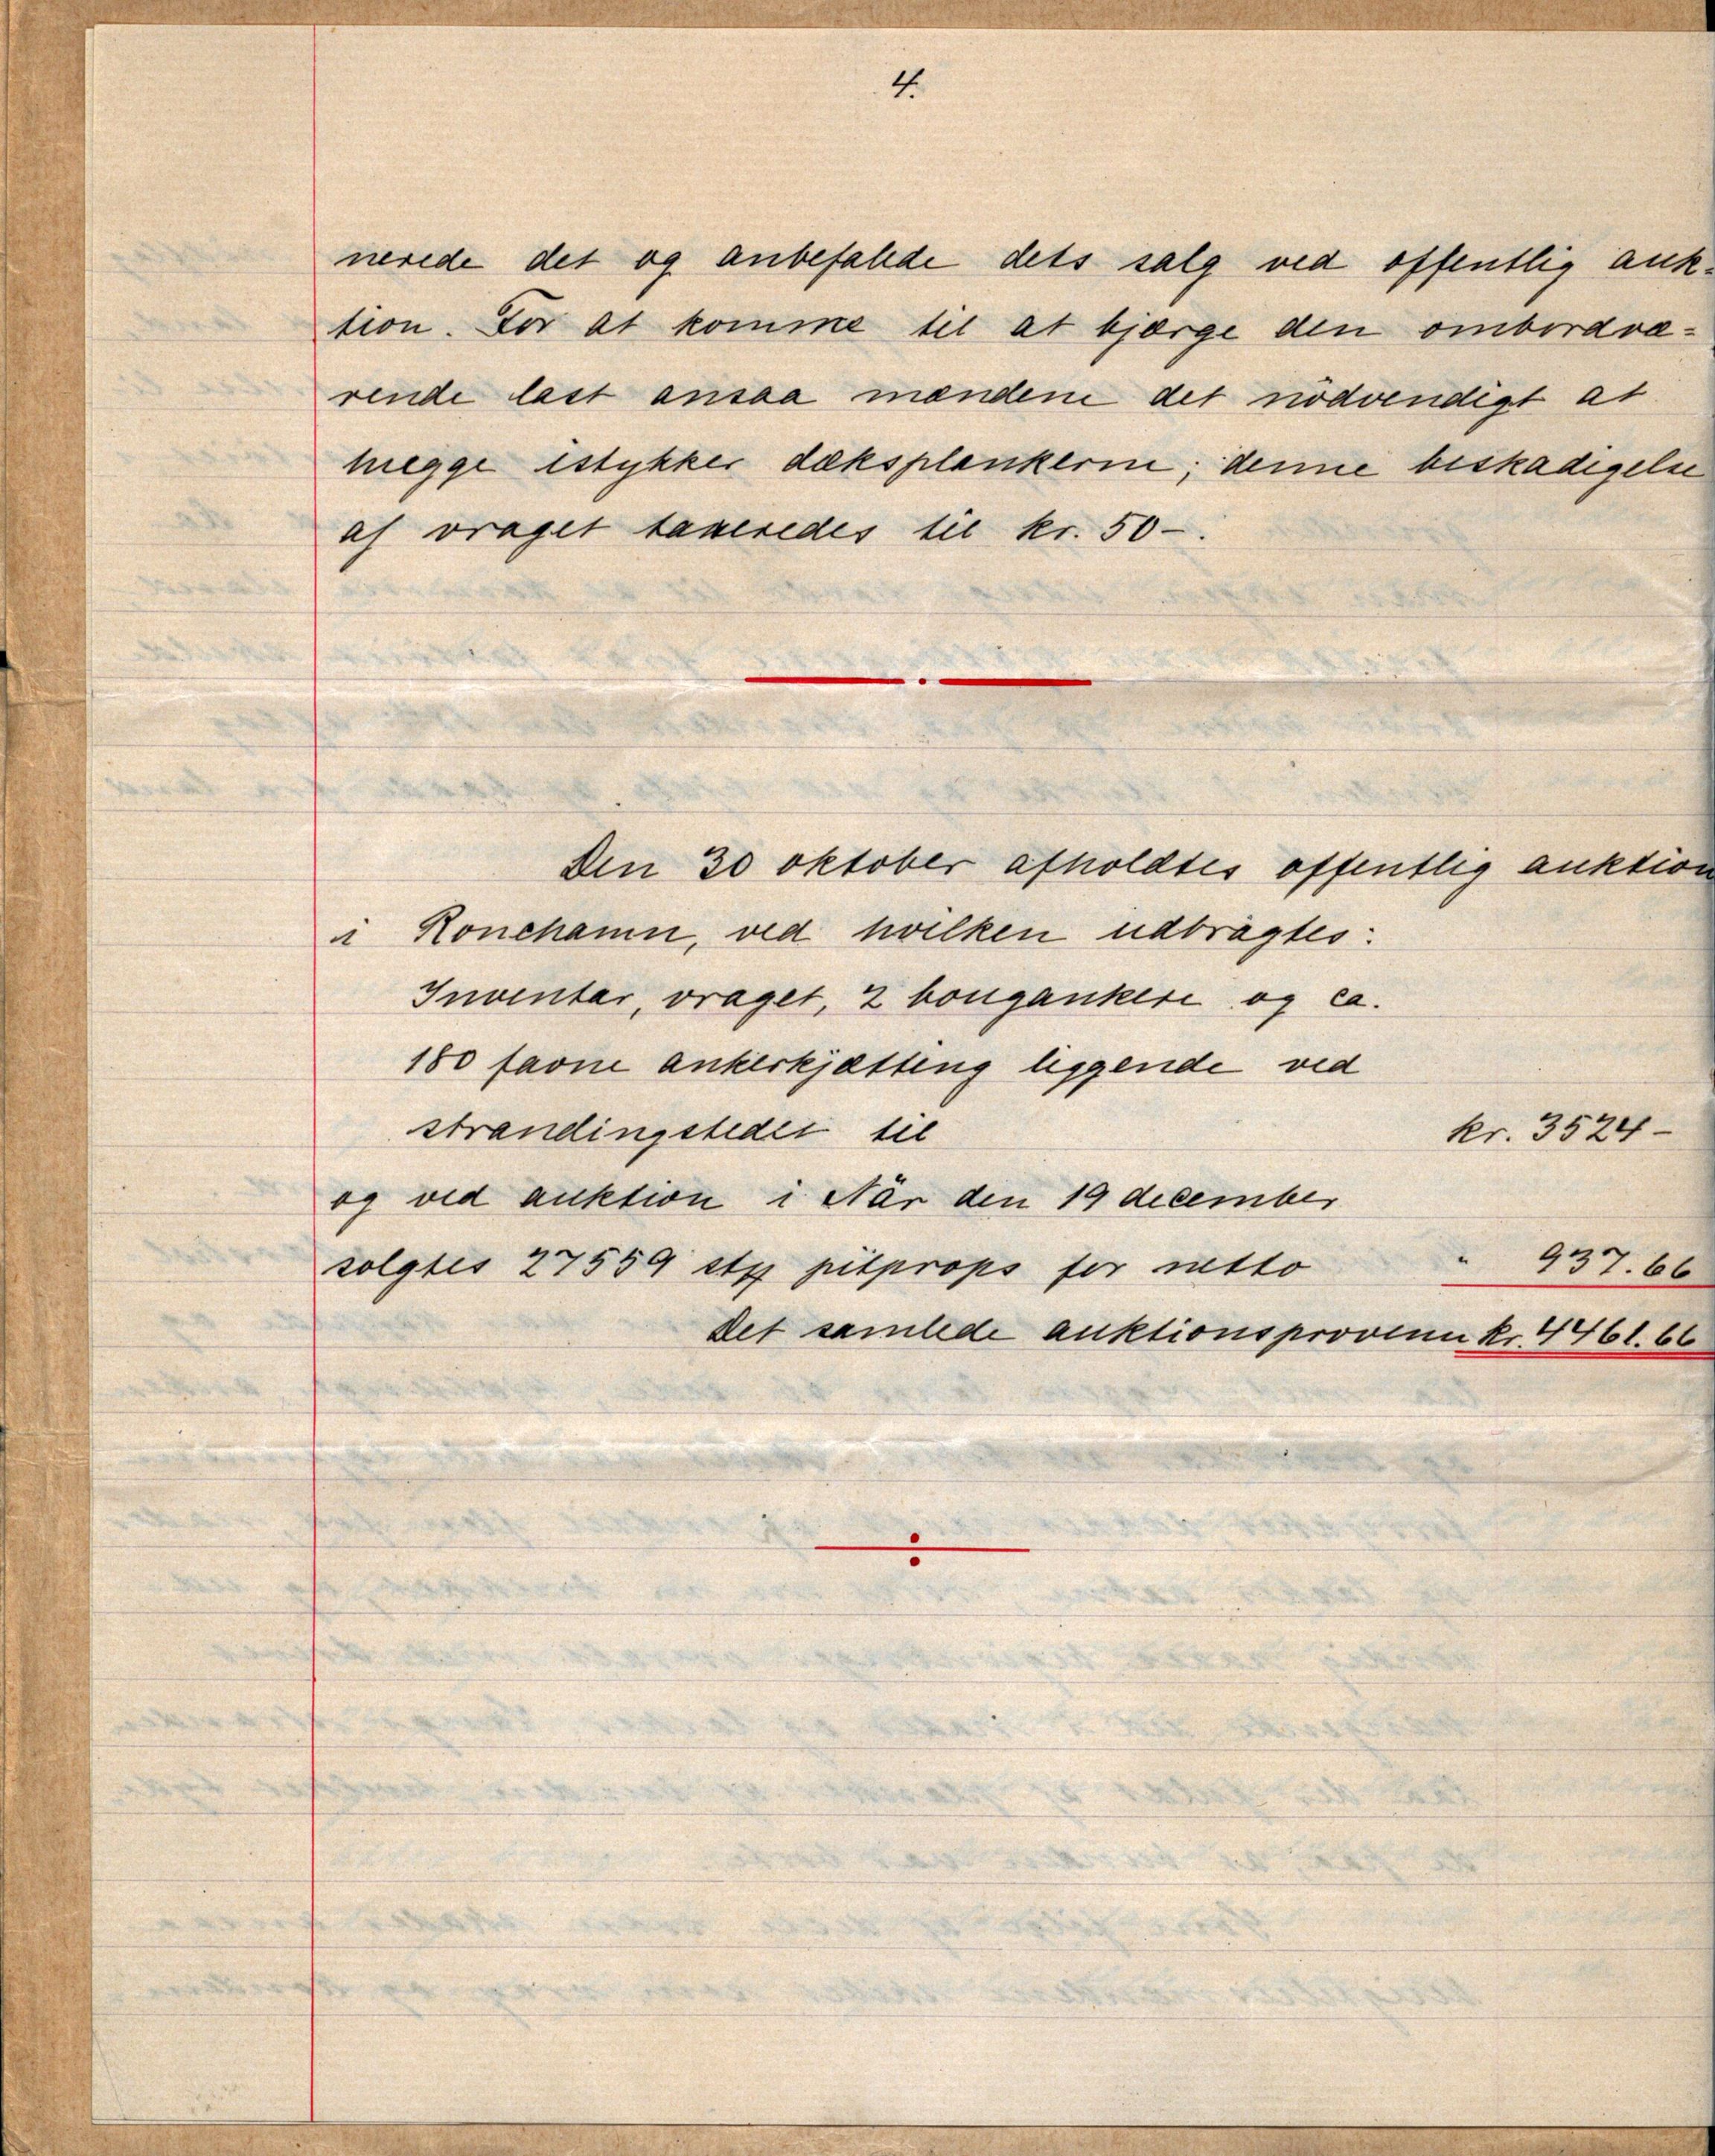 4.
nerede det og anbefalede dets salg ved offentlig auk-
tion. For at komme til at bjærge den ombordvæ-
rende last ansaa mændene det nödvendigt at
hugge istykker dæksplankerne; denne beskadigelse
af vraget taxeredes til kr. 50-.
Den 30 oktober afholdtes offentlig auktion
i Ronehamn, ved hvilken udbragtes:
Inventar, vraget, 2 bougankere og ca.
180 favne ankerkjætting liggende ved
strandingstedet til kr. 3524-
og ved auktion i När den 19 december
solgtes 27559 stk pitprops for netto " 937.66
Det samlede auktionsprovenu kr. 4461.66